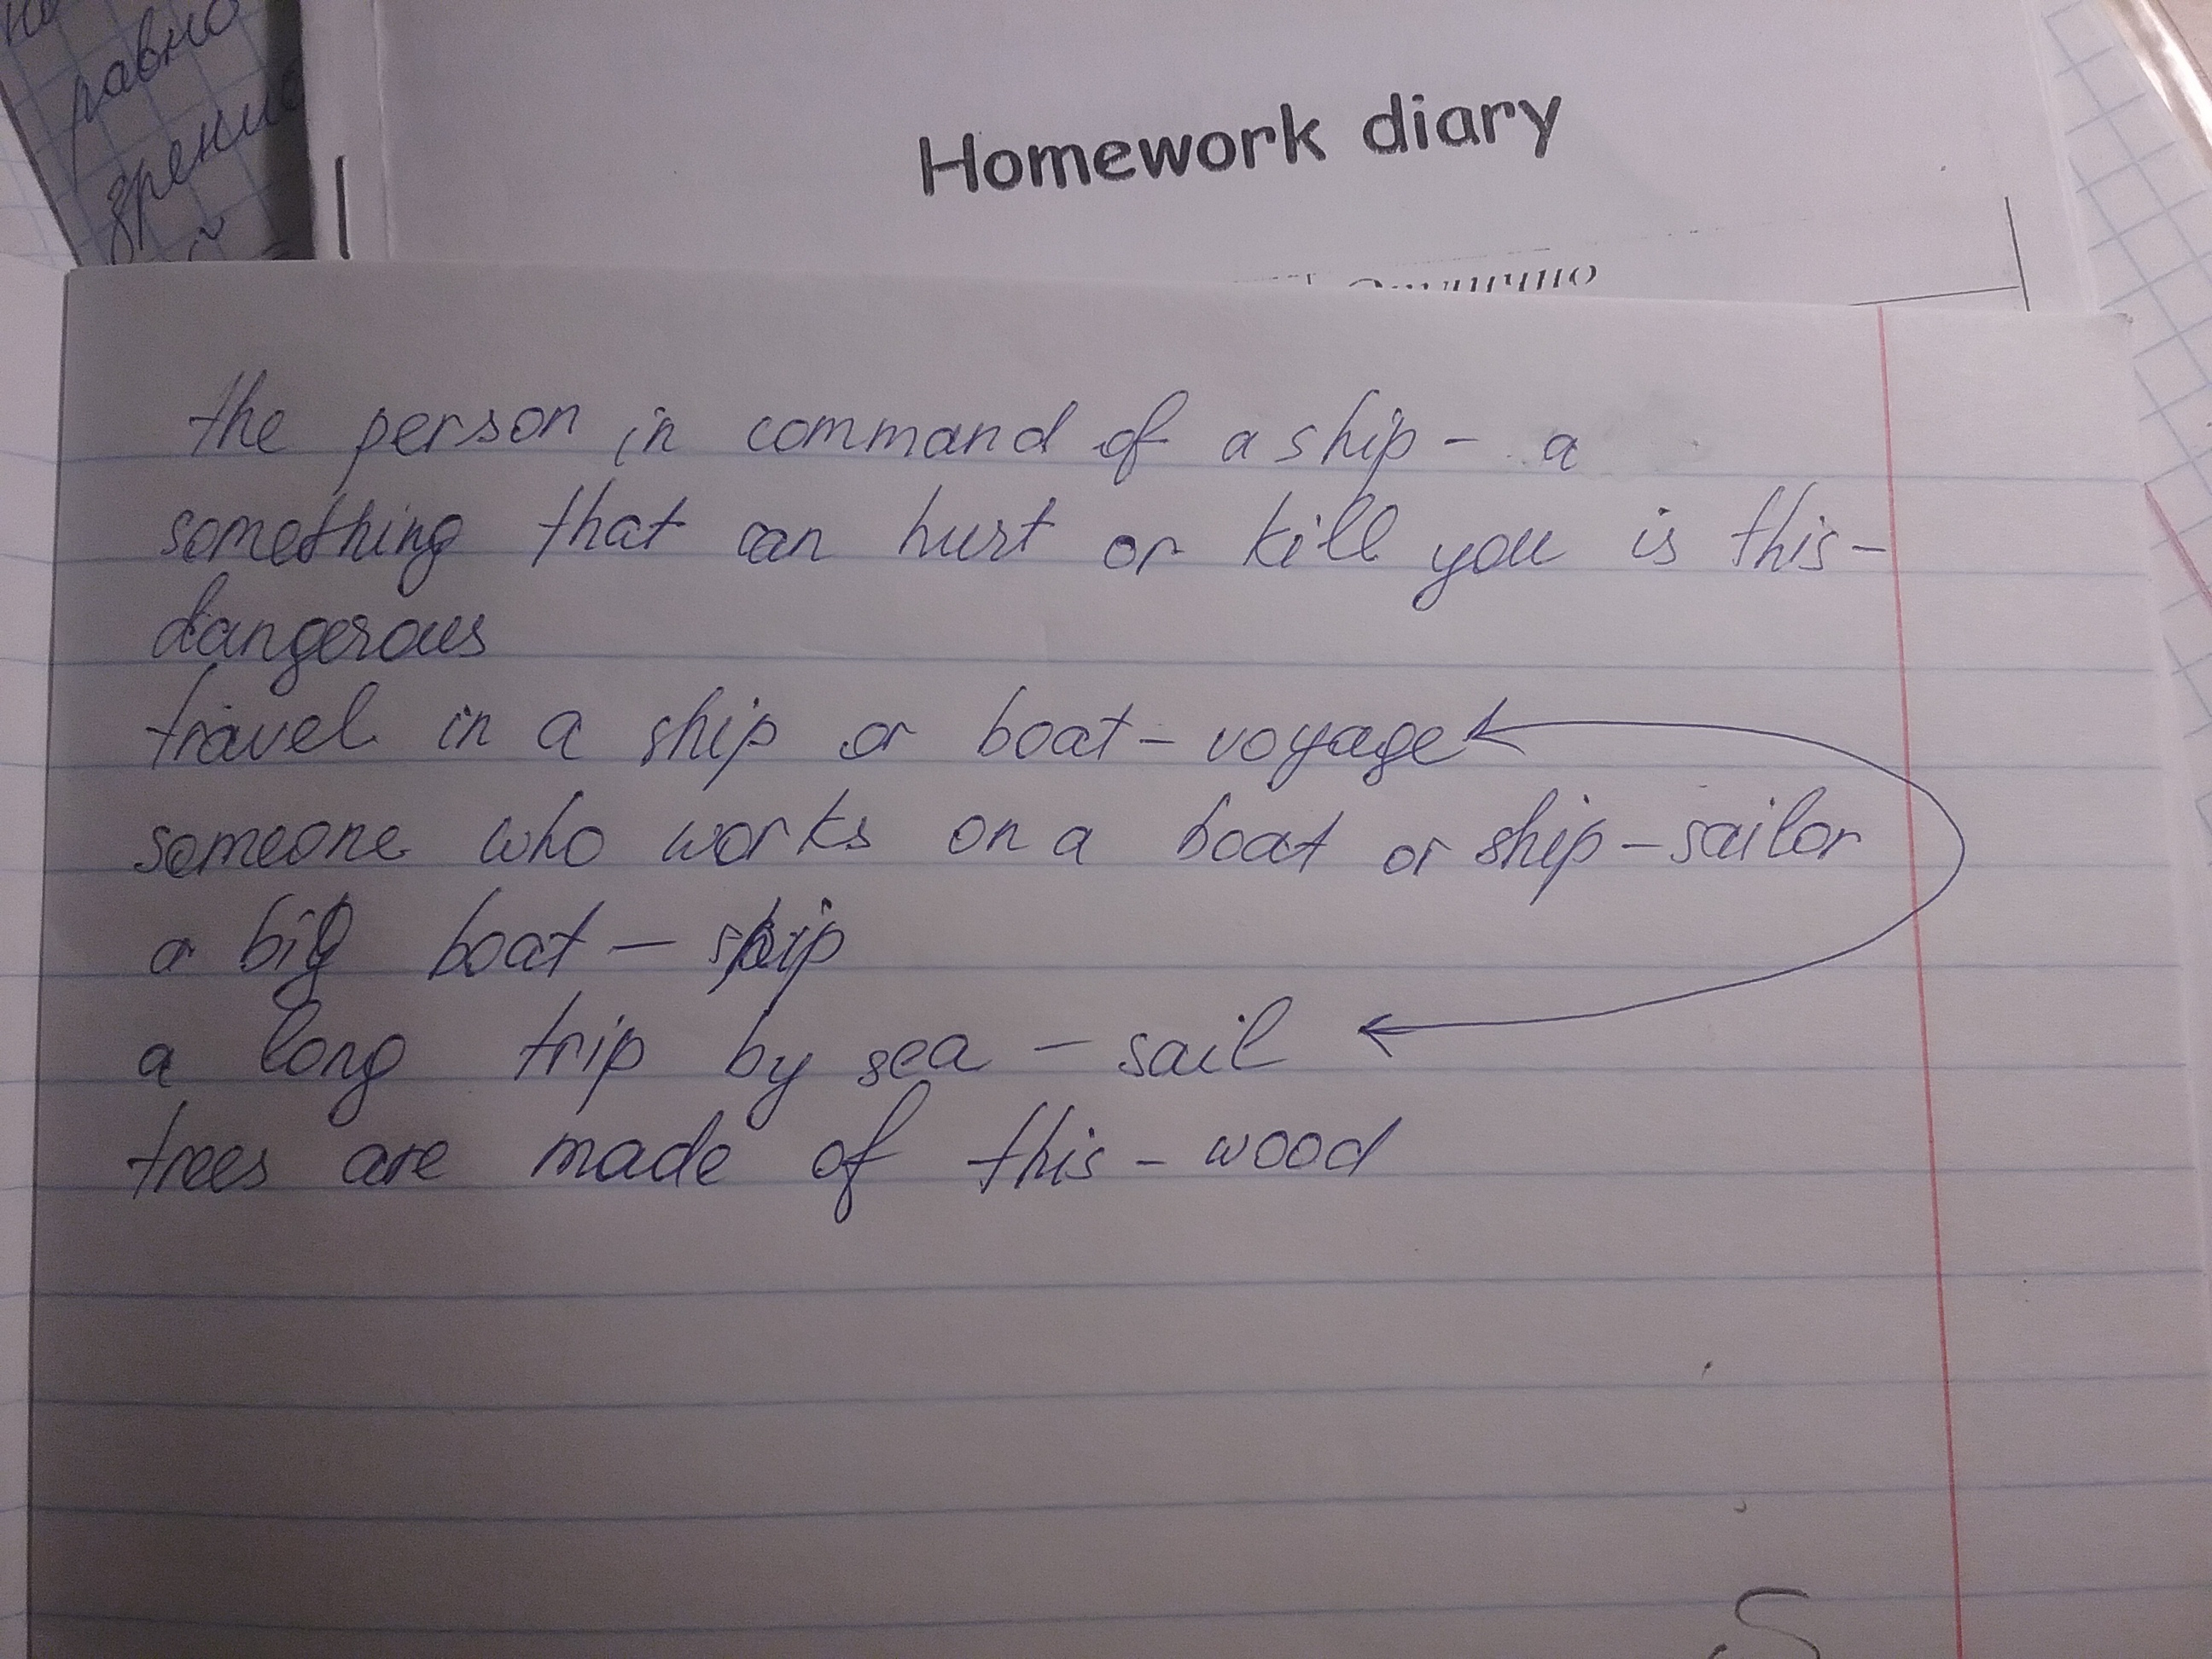 равно
зрение
Homework diary
the person in command of a ship - a
something that can hurt or kill you is this -
dangerous
travel in a ship or boat - voyage
someone who works on a boat or ship - sailor
a big boat - ship
a long trip by sea - sail
trees are made of this - wood